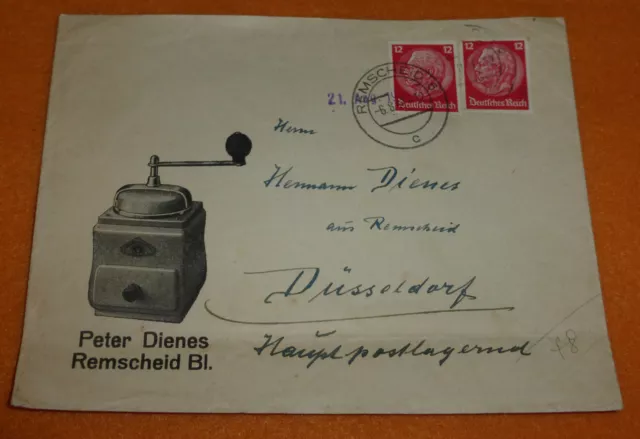 12 12
12 12
Deutsches Reich Deutsches Reich
REMSCHEID
c
21.
Herrn
Hermann Dienes
aus Remscheid
Düsseldorf
Hauptpostlagernd
Peter Dienes
Remscheid Bl.